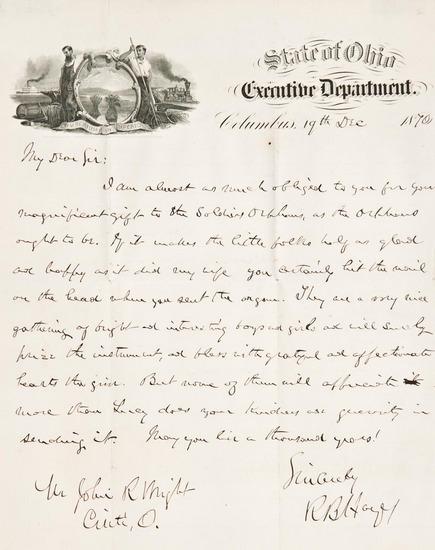 State of Ohio
Executive Department.
Columbus, 19th Dec 1870
My Dear Sir:
I am almost as much obliged to you for your
magnificent gift to the Soldiers Orphans, as the Orphans
ought to be. If it makes the little folks half as glad
ad happy as it did my wife you certainly hit the nail
on the head when you sent the organ. They are a very nice
gathering of bright ad interesting boys ad girls ad will surely
prize the instrument, ad bless with grateful ad affectionate
hearts the giver. But none of them will appreciate it
more than Lucy does your kindness ad generosity in
sending it. May you live a thousand years!
Sincerely
R B Hayes
Mr John R Wright
Cinti, O.